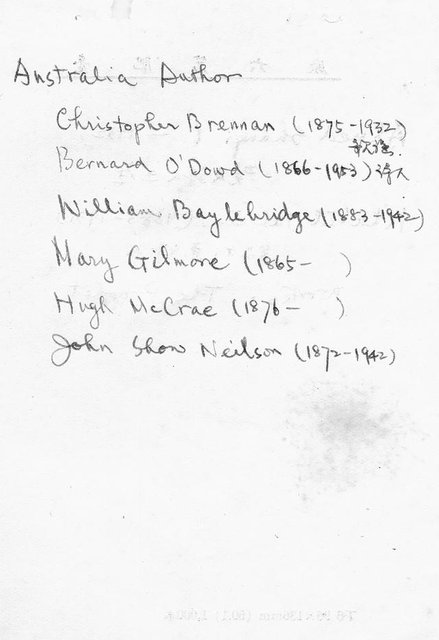 Australia Author
Christopher Brennan (1875-1932)
Bernard O'Dowd (1866-1953) 詩人
William Baylebridge (1883-1942)
Mary Gilmore (1865- )
Hugh McCrae (1876- )
John Show Neilson (1872-1942)